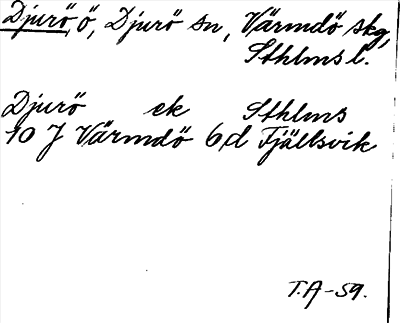 Djurö ö, Djurö sn, Värmdö skg,
Sthlms l.
Djurö ek Sthlms
10 J Värmdö 6d Fjällsvik
T.A-59.